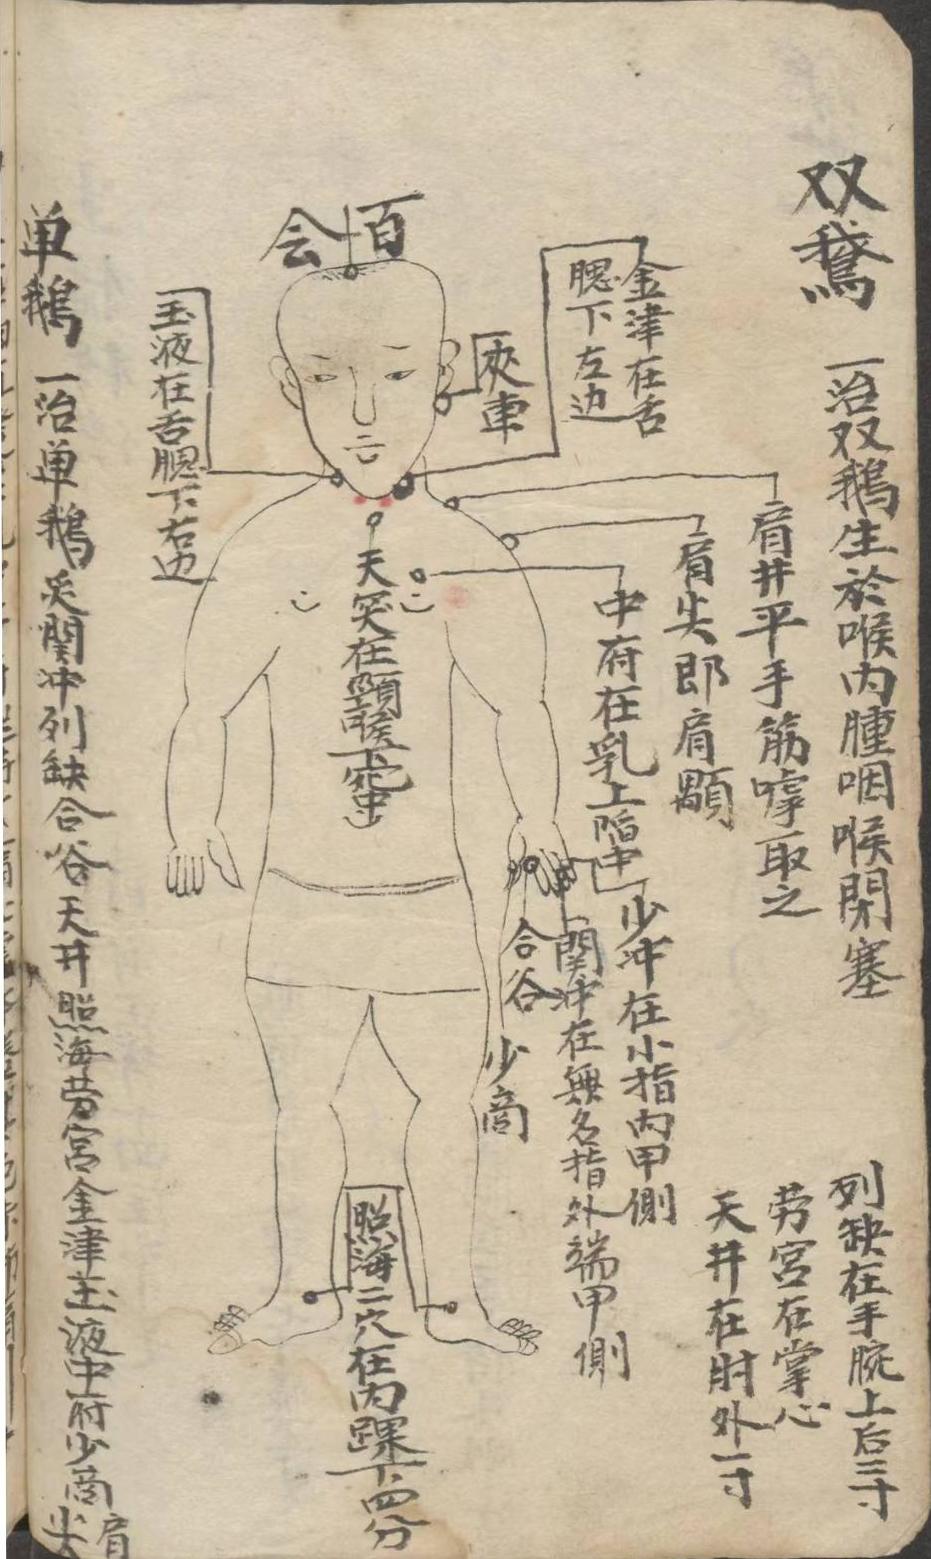 双鵞
一治双鵝生於喉内腫咽喉閉塞
列缺在手腕上后三寸
劳宫在掌心
天井在肘外一寸
肩井平手筋嘑取之
肩尖即肩顒
金津在舌
腮下左边
中府在乳上陷中
少冲在小指内甲側
関冲在無名指外端甲側
合谷
少商
夾車
百会
天突在頸喉下宛中
照海二穴在内踝下四分
玉液在舌腮下右边
单鵝
一治单鵝灸関冲列缺合谷天井照海劳宫金津玉液中府少商肩尖